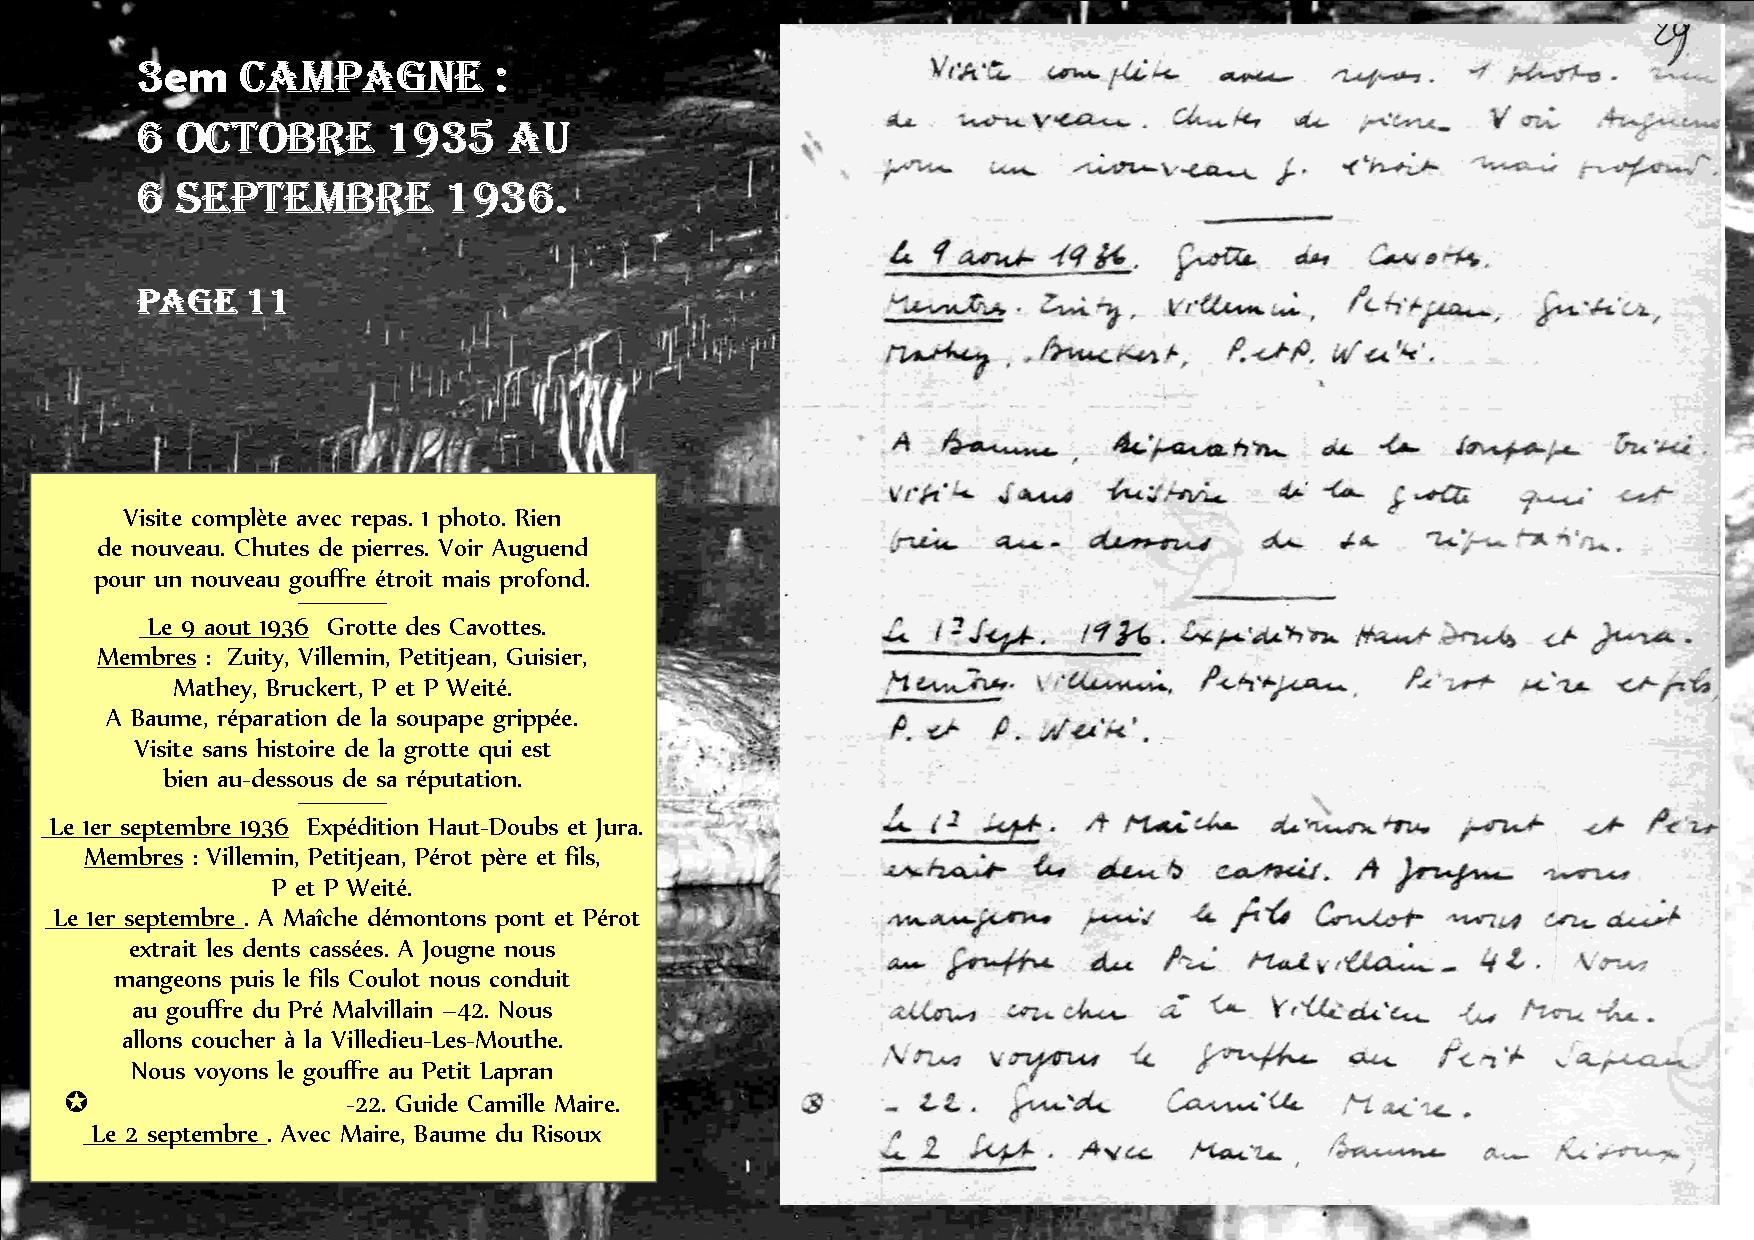 3em CAMPAGNE :
6 OCTOBRE 1935 AU
6 SEPTEMBRE 1936.
PAGE 11
Visite complète avec repas. 1 photo. Rien
de nouveau. Chutes de pierres. Voir Auguend
pour un nouveau gouffre étroit mais profond.
Le 9 aout 1936 Grotte des Cavottes.
Membres : Zuity, Villemin, Petitjean, Guisier,
Mathey, Bruckert, P et P Weité.
A Baume, réparation de la soupape grippée.
Visite sans histoire de la grotte qui est
bien au-dessous de sa réputation.
Le 1er septembre 1936 Expédition Haut-Doubs et Jura.
Membres : Villemin, Petitjean, Pérot père et fils,
P et P Weité.
Le 1er septembre . A Maîche démontons pont et Pérot
extrait les dents cassées. A Jougne nous
mangeons puis le fils Coulot nous conduit
au gouffre du Pré Malvillain –42. Nous
allons coucher à la Villedieu-Les-Mouthe.
Nous voyons le gouffre au Petit Lapran
✪ -22. Guide Camille Maire.
Le 2 septembre . Avec Maire, Baume du Risoux
29
Visite complète avec repas. 1 photo. rien
de nouveau. Chutes de pierres Voir Auguend
pour un nouveau g. étroit mais profond.
le 9 aout 1936. Grotte des Cavottes.
Membres. Zuity, Villemin, Petitjean, Guisier,
Mathey, Bruckert, P. et P. Weité.
A Baume, Réparation de la soupape brisée.
visite sans histoire de la grotte qui est
bien au-dessous de sa réputation.
Le 1er Sept. 1936. Expédition Haut Doubs et Jura.
Membres. Villemin, Petitjean, Pérot père et fils,
P. et P. Weité.
Le 1er Sept. A Maîche démontons pont et Péro
extrait les dents cassées. A Jougne nous
mangeons puis le fils Coulot nous conduit
au gouffre du Pré Malvillain - 42. Nous
allons coucher à la Villedieu les Mouthe.
Nous voyons le gouffre du Petit Sapeau
- 22. Guide Camille Maire.
Le 2 Sept. Avec Maire, Baume au Risoux,